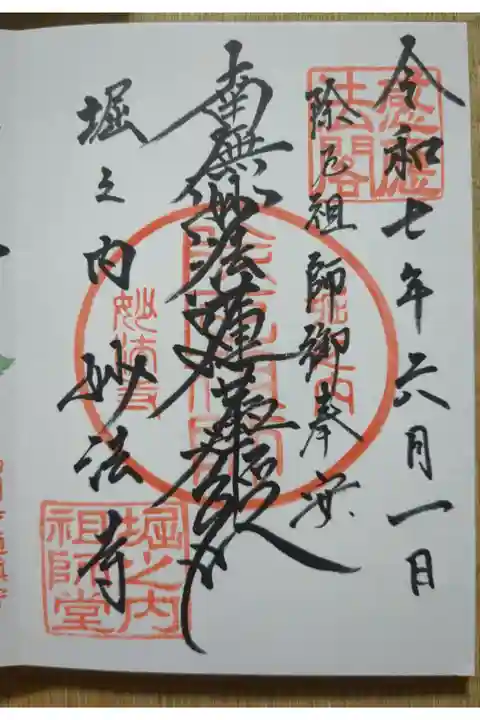 令和七年六月一日
除厄祖師御奉安
南無妙法蓮華経
堀之内妙法寺
堀之内
妙法寺
堀之内
祖師堂